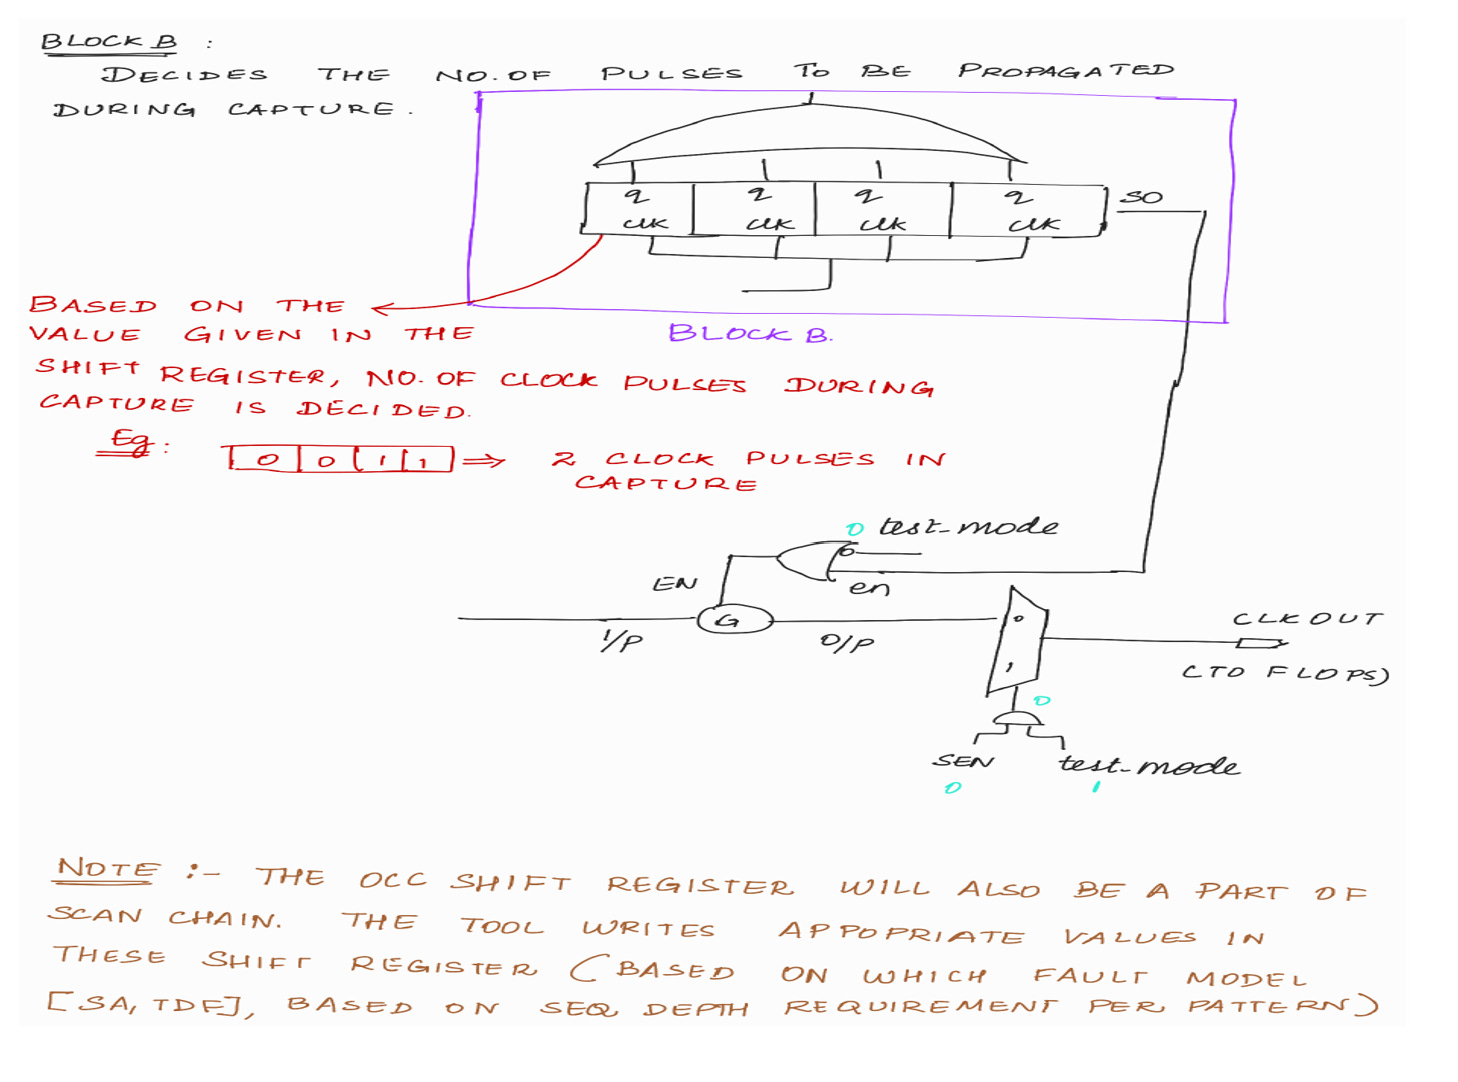 BLOCK B :
DECIDES THE NO. OF PULSES TO BE PROPAGATED
DURING CAPTURE.
q q q q
clk clk clk clk
SO
BLOCK B.
BASED ON THE
VALUE GIVEN IN THE
SHIFT REGISTER, NO. OF CLOCK PULSES DURING
CAPTURE IS DECIDED.
Eg: 0 0 1 1 ⇒ 2 CLOCK PULSES IN
CAPTURE
0 test-mode
EN
en
G
I/P
O/P
0
1
CLKOUT
(TO FLOPS)
0
SEN test-mode
0 1
NOTE :- THE OCC SHIFT REGISTER WILL ALSO BE A PART OF
SCAN CHAIN. THE TOOL WRITES APPOPRIATE VALUES IN
THESE SHIFT REGISTER (BASED ON WHICH FAULT MODEL
[SA, TDF], BASED ON SEQ DEPTH REQUIREMENT PER PATTERN)